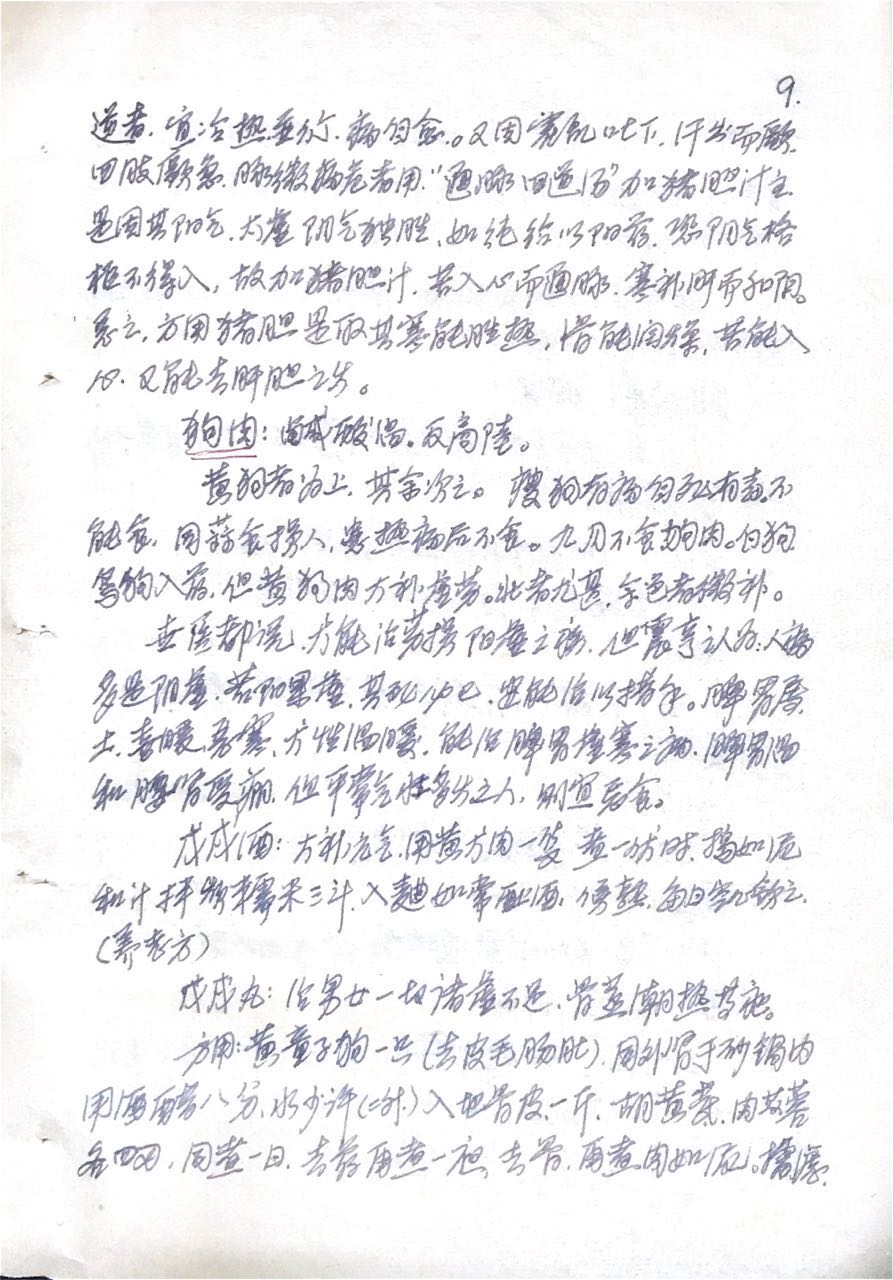 9.
逆者,宜冷热并行,病自愈。又因霍乱吐下,汗出而厥
四肢厥急,脉微病危者用“通脉四逆汤”加猪胆汁主.
是因其阳气太虚阴气独胜,如纯给以阳药,恐阴气格
柜不得入,故加猪胆汁,苦入心而通脉,寒补肝而和阴。
总之,方用猪胆是取其寒能胜热,滑能润燥,苦能入
心,又能去肝胆之火。
狗肉:咸酸温。反商陆。
黄狗者为上,其余次之。瘦狗有病自死有毒,不
能食,同蒜食损人,寒热病后不食。九月不食狗肉。白狗
乌狗入药,但黄狗肉大补虚劳。壮者尤甚,余色者微补。
世医都说,犬能治劳损阳虚之疾,但震亨认为:人病
多是阴虚,若阳果虚,其死必也,岂能治以择手。脾胃属
土,喜暖恶寒,犬性温暖,能治脾胃虚寒之病,脾胃温
和腰肾受荫,但平常气壮多火之人,则宜忌食。
戊戌酒:大补元气,用黄犬肉一只煮一伏时,捣如泥
和汁拌炊糯米三斗,入麯如常酿酒,候熟,每日空心饮之.
(养老方)
戊戌丸:治男女一切诸虚不足,骨蒸潮热等症。
方用:黄童子狗一只(去皮毛肠肚),同外肾于砂锅内
用酒醋各八分,水少许(二升)入地骨皮一斤,胡黄芪,肉苁蓉
各四两,同煮一日,去药再煮一夜,去骨,再煮肉如泥。擂滤.